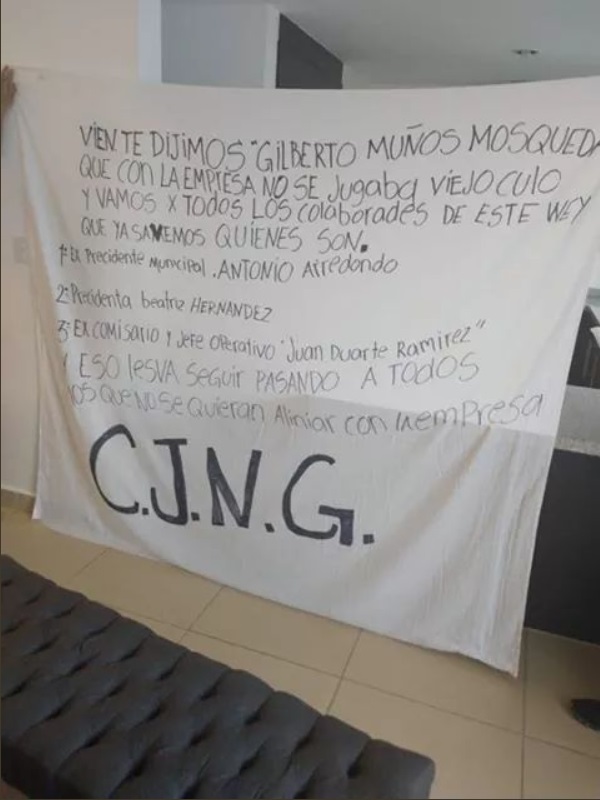 VIEN TE DIJIMOS "GILBERTO MUÑOS MOSQUEDA
QUE CON LA EMPRESA NO SE Jugaba VIEJO CULO
Y VAMOS X TODOS LOS colaborades DE ESTE WEY
QUE YA SAVEMOS QUIENES SON.
1º Ex Precidente Municipal . ANTONIO Arredondo
2º Precidenta beatriz HERNANDEZ
3º EX COMISARIO Y Jefe OPerativo "Juan Duarte Ramirez"
Y ESO lesVA SeGUIr PASANDO A TODOS
los QUe NO Se QUieran Aliniar con laemPresa
C.J.N.G.